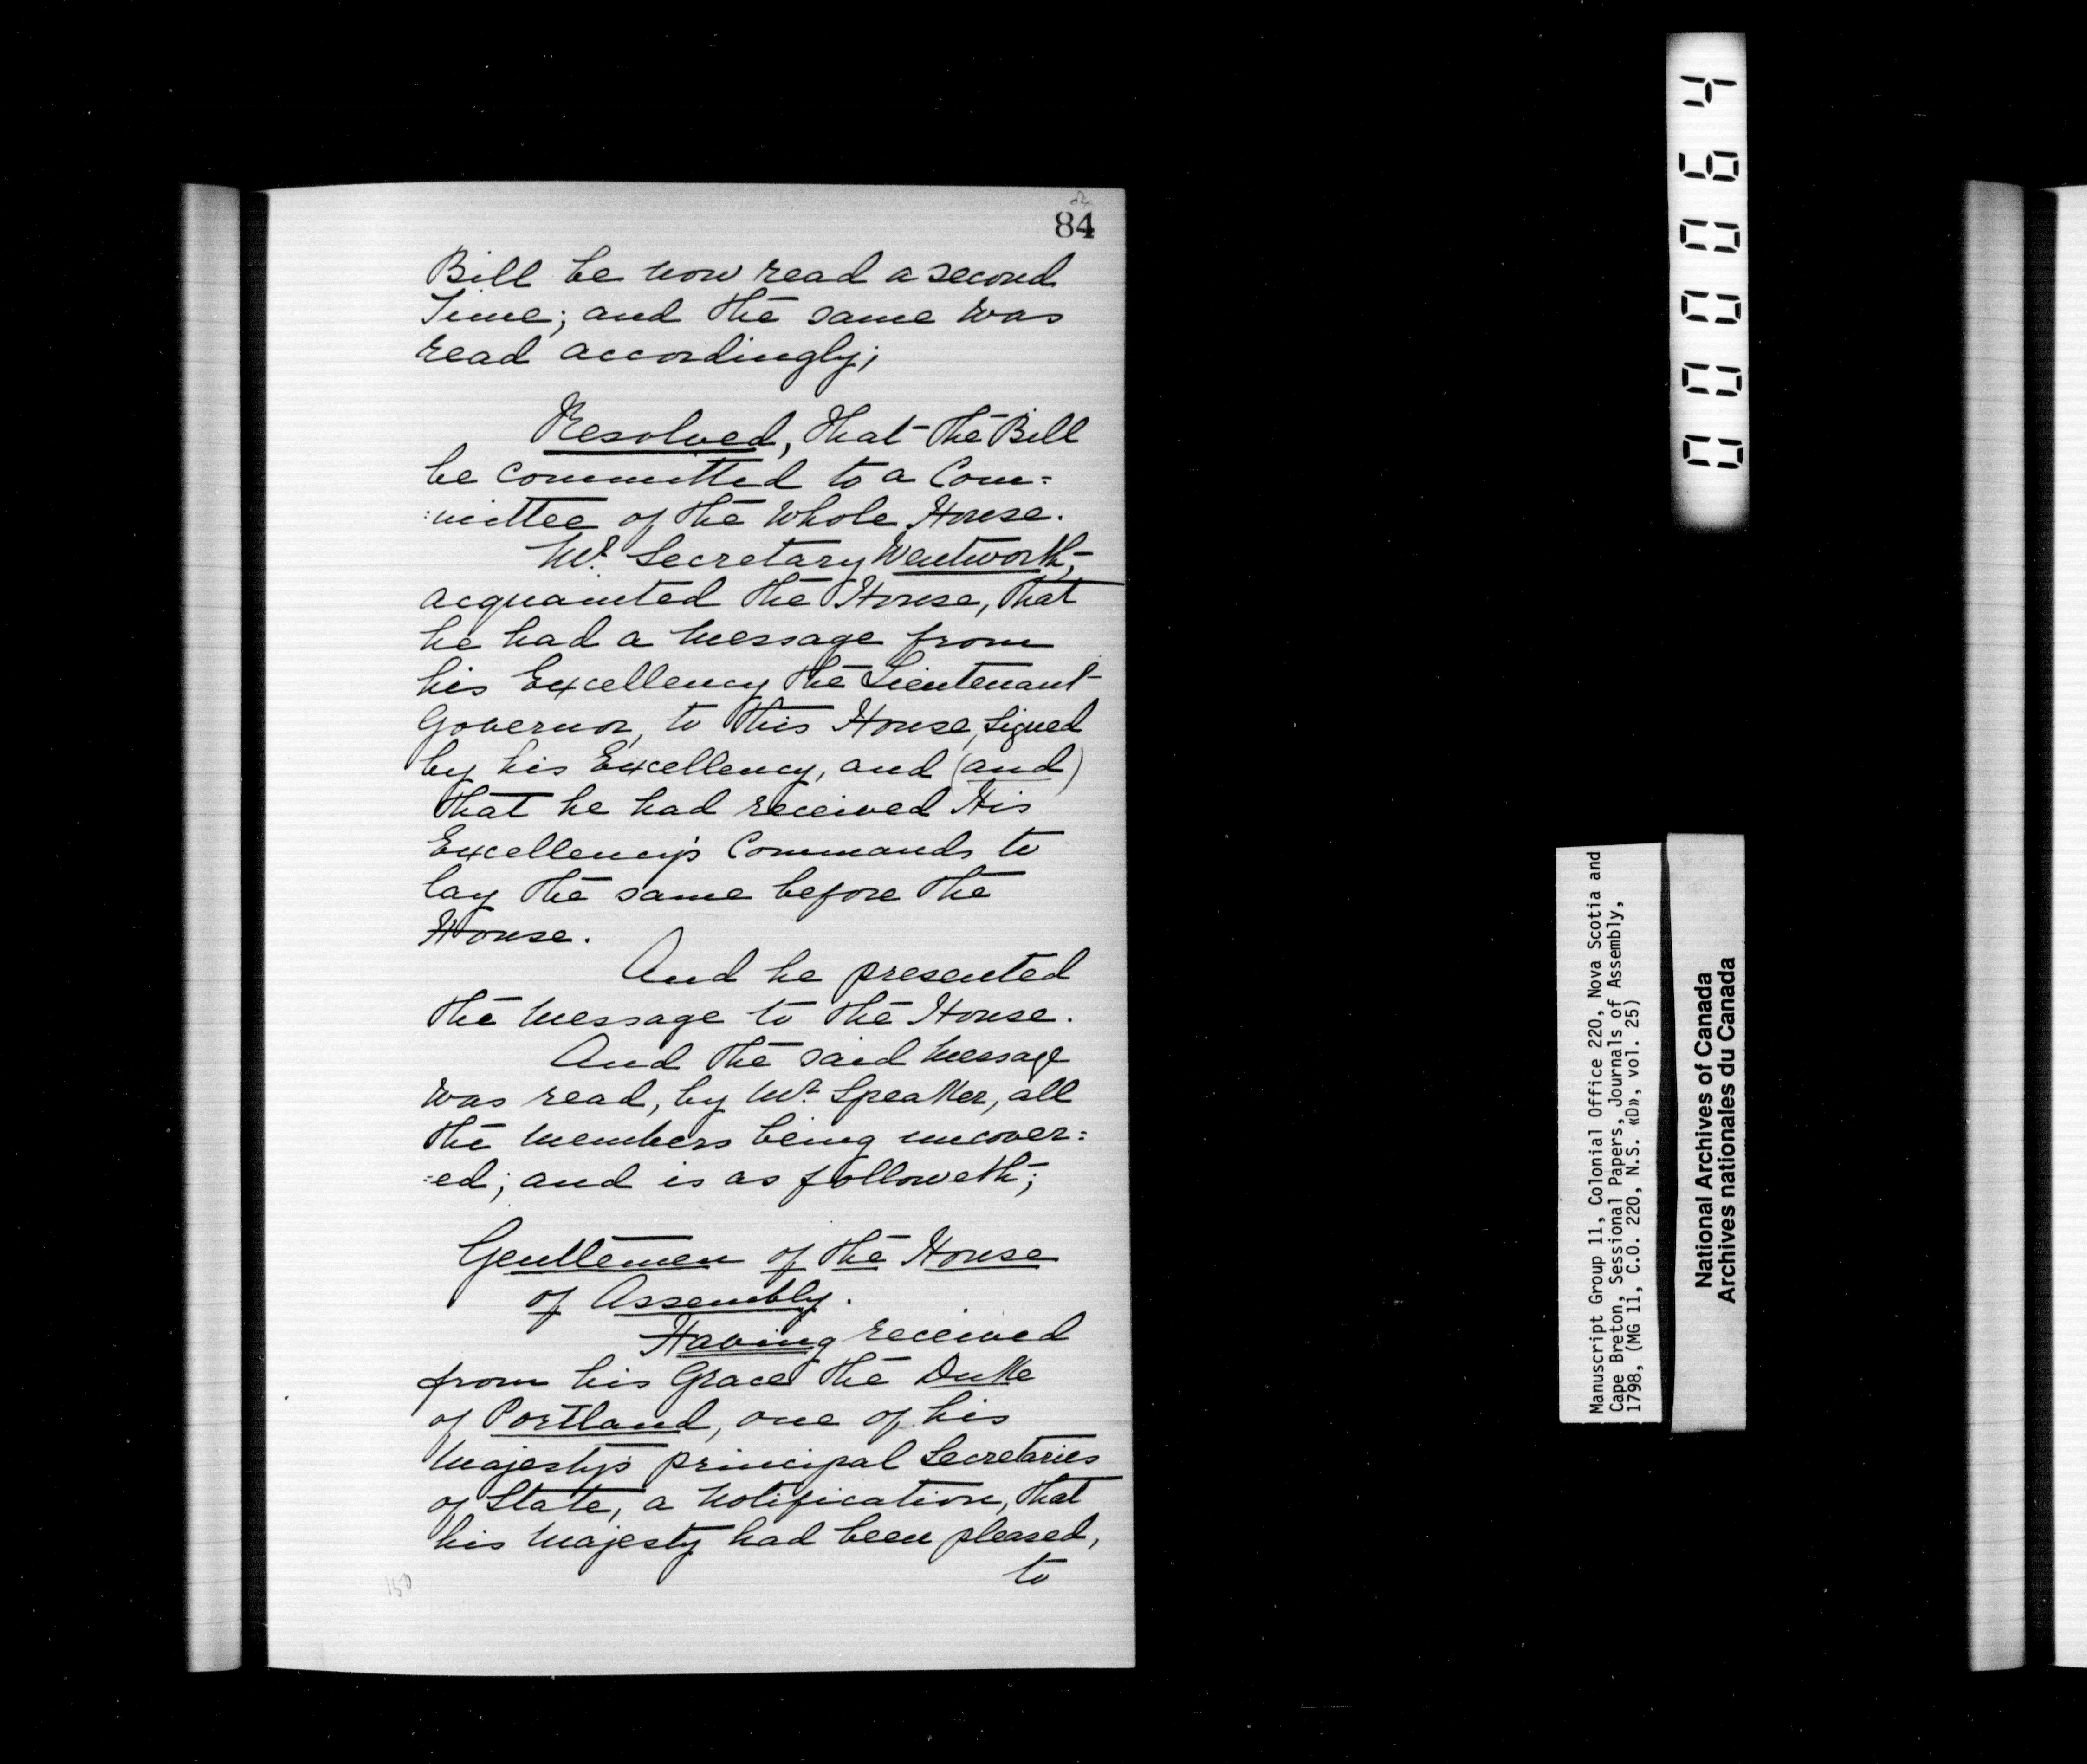 84
84
Bill be now read a second
Time; and the same was
read accordingly;
Resolved, that the Bill
be committed to a Com=
:mittee of the whole House.
Mr. Secretary Wentworth,
acquainted the House, that
he had a message from
his Excellency the Lieutenant
Governor, to this House, signed
by his Excellency, and (and)
that he had received His
Excellency's Commands to
lay the same before the
House.
And he presented
the message to the House.
And the said message
was read, by Mr. Speaker, all
the members being uncover=
=ed; and is as followeth;
Gentlemen of the House
of Assembly.
Having received
from his Grace the Duke
of Portland, one of his
Majesty's principal Secretaries
of State, a notification, that
his Majesty had been pleased,
to
150
000064
Manuscript Group 11, Colonial Office 220, Nova Scotia and
Cape Breton, Sessional Papers, Journals of Assembly,
1798, (MG 11, C.O. 220, N.S. «D», vol. 25)
National Archives of Canada
Archives nationales du Canada